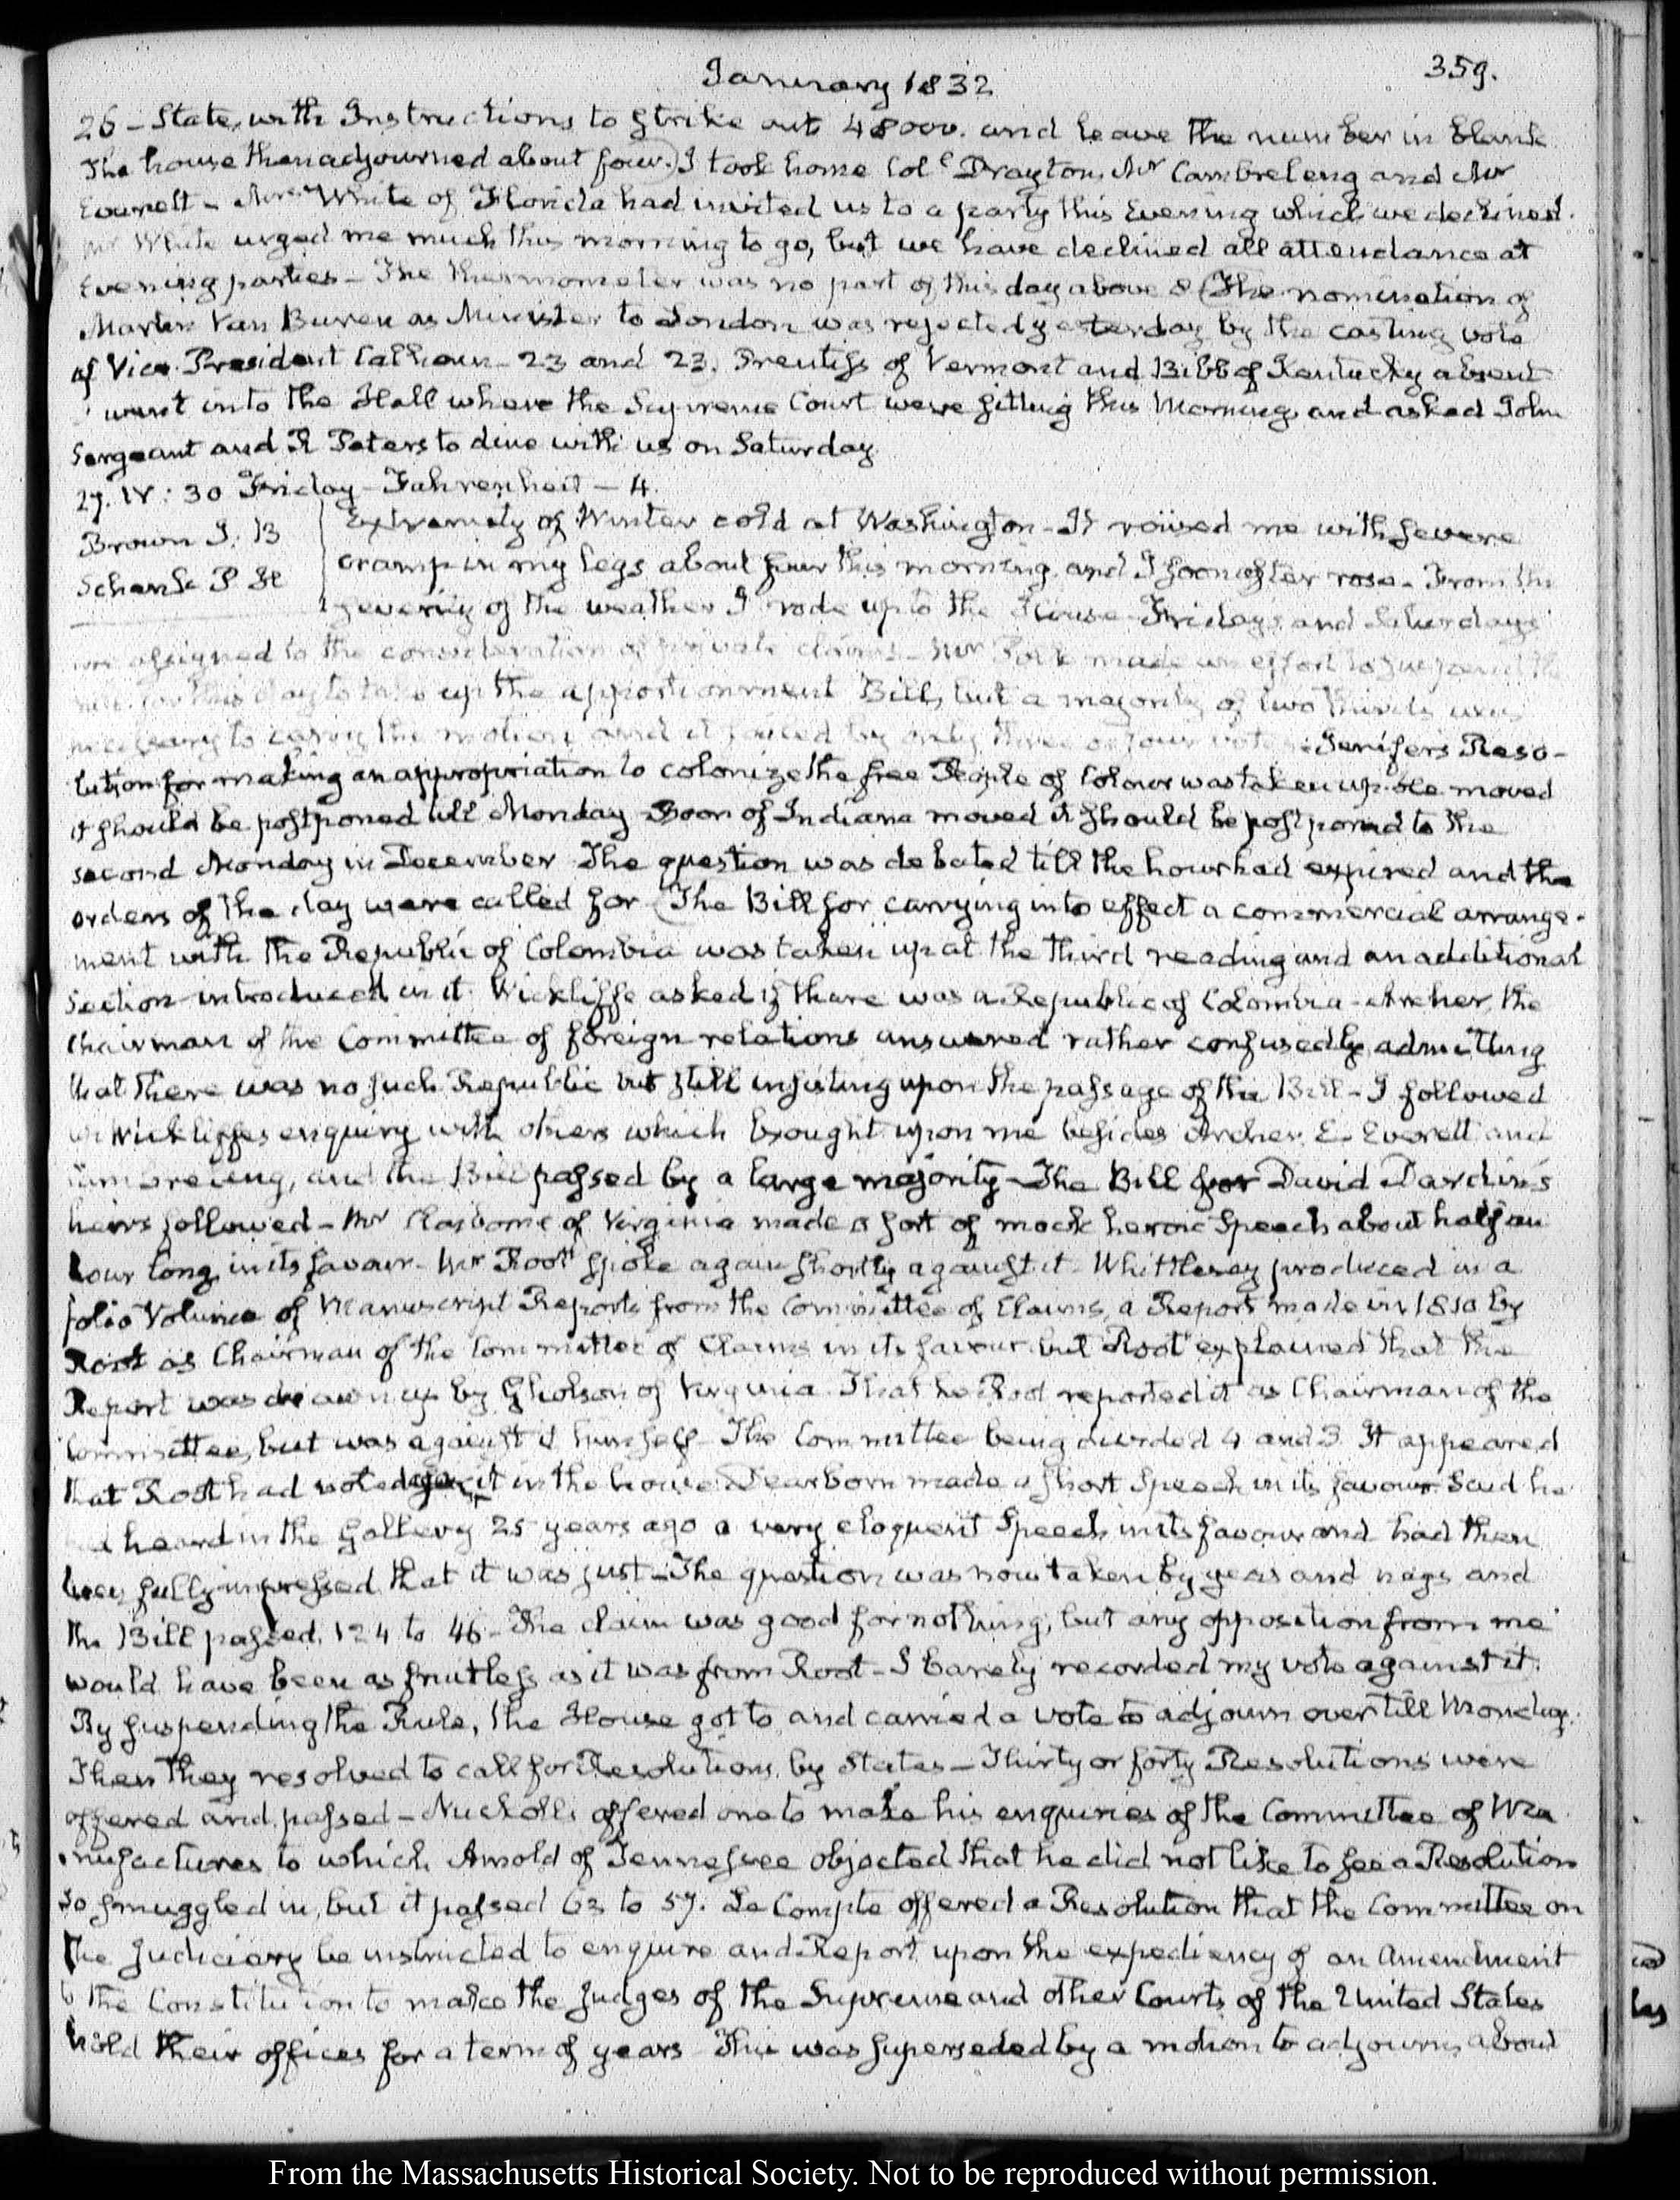 January 1832
359.
26 - State, with Instructions to strike out 48000. and leave the number in blank
The house then adjourned about four. I took home Colᵉ Drayton, Mr Cambreleng and Mr
Everett - Mrs White of Florida had invited us to a party this Evening which we declined.
Mr White urged me much this morning to go, but we have declined all attendance at
Evening parties - The thermometer was no part of this day above 8 (The nomination of
Martin Van Buren as Minister to London was rejected yesterday by the casting vote
of Vice President Calhoun - 23 and 23. Prentiss of Vermont and Bibb of Kentucky absent
I went into the Hall where the Supreme Court were sitting this Morning, and asked John
Sergeant and R Peters to dine with us on Saturday
27. IV: 30 Friday - Fahrenheit - 4.
Brown J. B
Schenk F H
Extremity of Winter cold at Washington - It roused me with severe
cramp in my legs about four this morning, and I soon after rose - From the
severity of the weather I rode up to the House - Fridays and Saturdays
are assigned to the consideration of private claims - Mr Polk made an effort to suspend the
rule for this day to take up the apportionment Bill, but a majority of two thirds was
necessary to carry the motion, and it failed by only three or four votes. Jenifer's Reso-
lution for making an appropriation to colonize the free People of Colour was taken up. He moved
it should be postponed till Monday - Boon of Indiana moved it should be postponed to the
second Monday in December The question was debated till the hour had expired and the
orders of the day were called for (The Bill for carrying into effect a commercial arrange-
ment with the Republic of Colombia was taken up at the third reading and an additional
section introduced in it. Wickliffe asked if there was a Republic of Colombia - Archer, the
Chairman of the Committee of foreign relations answered rather confusedly, admitting
that there was no such Republic but still insisting upon the passage of the Bill - I followed
up Wickliffe's enquiry with others which brought upon me besides Archer, E. Everett and
Cambreleng, and the Bill passed by a large majority - The Bill for David Dardin's
heirs followed - Mr Claiborne of Virginia made a sort of mock heroic Speech about half an
hour long in its favour - Mr Root spoke again shortly against it - Whittlesey produced in a
folio Volume of Manuscript Reports from the Committee of Claims, a Report made in 1810 by
Root as Chairman of the Committee of Claims in its favour but Root explained that the
Report was drawn up by Gholson of Virginia. That he Root reported it as Chairman of the
Committee, but was against it himself - The Committee being divided 4 and 3. It appeared
that Root had voted against it in the house. Dearborn made a short Speech in its favour - Said he
had heard in the Gallery 25 years ago a very eloquent Speech in its favour and had then
been fully impressed that it was just - The question was now taken by yeas and nays and
the Bill passed, 124 to 46 - The claim was good for nothing, but any opposition from me
would have been as fruitless as it was from Root - I barely recorded my vote against it.
By suspending the Rule, the House got to and carried a vote to adjourn over till Monday.
Then they resolved to call for Resolutions by States - Thirty or forty Resolutions were
offered and passed - Nuckolls offered one to make his enquiries of the Committee of Ma
nufactures to which Arnold of Tennessee objected that he did not like to see a Resolution
so smuggled in, but it passed 63 to 57. Le Compte offered a Resolution that the Committee on
the Judiciary be instructed to enquire and Report upon the expediency of an Amendment
to the Constitution to make the Judges of the Supreme and other Courts of the United States
hold their offices for a term of years - This was superseded by a motion to adjourn, about
From the Massachusetts Historical Society. Not to be reproduced without permission.